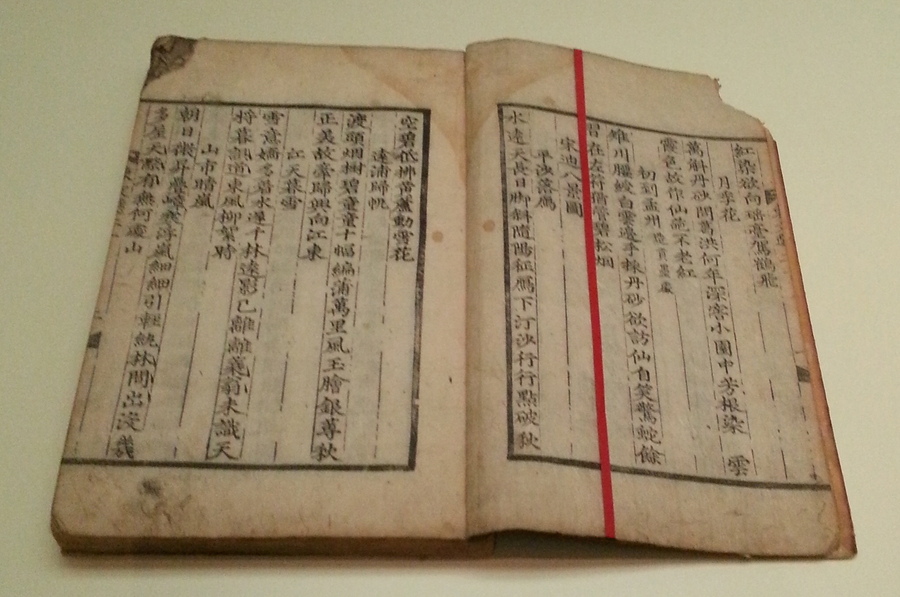 紅染欲向瑤臺駕鶴飛
月季花
萬斛丹砂問葛洪何年深窖小園中芳根染雲
霞色故作仙葩不老紅
初到孟州
雉川腰綬白雲邊手採丹砂欲訪仙自笑驚蛇餘
習在左符猶管碧松烟
宋迪八景圖
平沙落鴈
水遠天長日脚斜隨陽征鴈下汀沙行行點破秋
空碧低拂黃蘆動雪花
遠浦歸帆
渡頭烟樹碧童童十幅編蒲萬里風玉膾銀蓴秋
正美故豪歸興向江東
江天暮雪
雪意嬌多着水遲千林遠影已離離蓑翁未識天
將暮誤道東風柳絮時
山市晴嵐
朝日微昇疊嶂寒浮嵐細細引輕紈林間出沒幾
多屋天際有無何處山